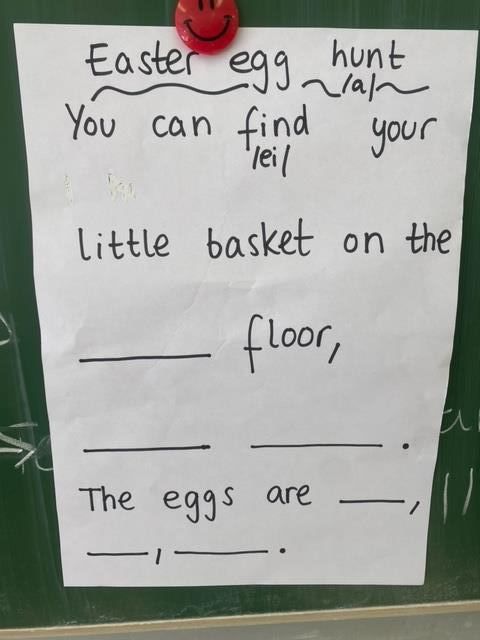 Easter egg hunt
/a/
You can find your
/ei/
little basket on the
______ floor,
______ ______.
The eggs are ___,
___, ____.